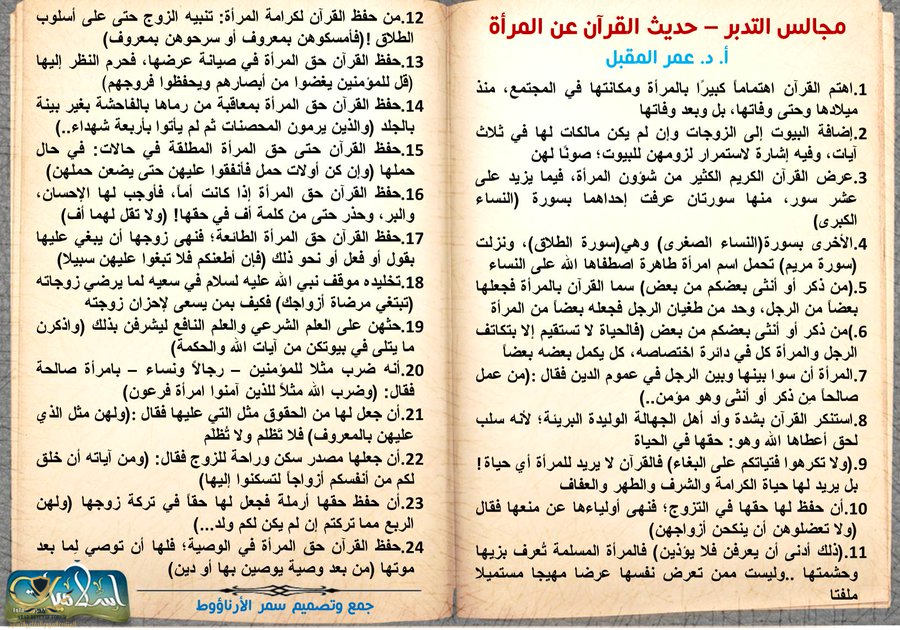 مجالس التدبر – حديث القرآن عن المرأة
أ. د. عمر المقبل
1.اهتم القرآن اهتماماً كبيرًا بالمرأة ومكانتها في المجتمع، منذ
ميلادها وحتى وفاتها، بل وبعد وفاتها
2.إضافة البيوت إلى الزوجات وإن لم يكن مالكات لها في ثلاث
آيات، وفيه إشارة لاستمرار لزومهن للبيوت؛ صونًا لهن
3.عرض القرآن الكريم الكثير من شؤون المرأة، فيما يزيد على
عشر سور، منها سورتان عرفت إحداهما بسورة (النساء
الكبرى)
4.الأخرى بسورة(النساء الصغرى) وهي(سورة الطلاق)، ونزلت
(سورة مريم) تحمل اسم امرأة طاهرة اصطفاها الله على النساء
5.(من ذكر أو أنثى بعضكم من بعض) سما القرآن بالمرأة فجعلها
بعضاً من الرجل، وحد من طغيان الرجل فجعله بعضاً من المرأة
6.)من ذكر أو أنثى بعضكم من بعض (فالحياة لا تستقيم إلا بتكاتف
الرجل والمرأة كل في دائرة اختصاصه، كل يكمل بعضه بعضاً
7.المرأة أن سوا بينها وبين الرجل في عموم الدين فقال :(من عمل
صالحاً من ذكر أو أنثى وهو مؤمن..)
8.استنكر القرآن بشدة وأد أهل الجهالة الوليدة البرينة؛ لأنه سلب
لحق أعطاها الله وهو: حقها في الحياة
9.(ولا تكرهوا فتياتكم على البغاء) فالقرآن لا يريد للمرأة أي حياة!
بل يريد لها حياة الكرامة والشرف والطهر والعفاف
10.أن حفظ لها حقها في التزوج؛ فنهى أولياءها عن منعها فقال
(ولا تعضلوهن أن ينكحن أزواجهن)
11.(ذلك أدنى أن يعرفن فلا يؤذين) فالمرأة المسلمة تُعرف بزيها
وحشمتها ..وليست ممن تعرض نفسها عرضا مهيجا مستميلا
ملفتا
12.من حفظ القرآن لكرامة المرأة: تنبيه الزوج حتى على أسلوب
الطلاق !(فأمسكوهن بمعروف أو سرحوهن بمعروف)
13.حفظ القرآن حق المرأة في صيانة عرضها، فحرم النظر إليها
(قل للمؤمنين يغضوا من أبصارهم ويحفظوا فروجهم)
14.حفظ القرآن حق المرأة بمعاقبة من رماها بالفاحشة بغير بينة
بالجلد (والذين يرمون المحصنات ثم لم يأتوا بأربعة شهداء..)
15.حفظ القرآن حتى حق المرأة المطلقة في حالات: في حال
حملها (وإن كن أولات حمل فأنفقوا عليهن حتى يضعن حملهن)
16.حفظ القرآن حق المرأة إذا كانت أماً، فأوجب لها الإحسان،
والبر، وحذر حتى من كلمة أف في حقها! (ولا تقل لهما أف)
17.حفظ القرآن حق المرأة الطائعة؛ فنهى زوجها أن يبغي عليها
بقول أو فعل أو نحو ذلك (فإن أطعنكم فلا تبغوا عليهن سبيلا)
18.تخليده موقف نبي الله عليه لسلام في سعيه لما يرضي زوجاته
(تبتغي مرضاة أزواجك) فكيف بمن يسعى لإحزان زوجته
19.حثهن على العلم الشرعي والعلم النافع ليشرفن بذلك (واذكرن
ما يتلى في بيوتكن من آيات الله والحكمة)
20.أنه ضرب مثلا للمؤمنين – رجالاً ونساء – بامرأة صالحة
فقال: (وضرب الله مثلاً للذين آمنوا امرأة فرعون)
21.أن جعل لها من الحقوق مثل التي عليها فقال :(ولهن مثل الذي
عليهن بالمعروف) فلا تَظلم ولا تُظلم
22.أن جعلها مصدر سكن وراحة للزوج فقال: (ومن آياته أن خلق
لكم من أنفسكم أزواجاً لتسكنوا إليها)
23.أن حفظ حقها أرملة فجعل لها حقاً في تركة زوجها (ولهن
الربع مما تركتم إن لم يكن لكم ولد...)
24.حفظ القرآن حق المرأة في الوصية؛ فلها أن توصي لِما بعد
موتها (من بعد وصية يوصين بها أو دين)
جمع وتصميم سمر الأرناؤوط
إسلاميات